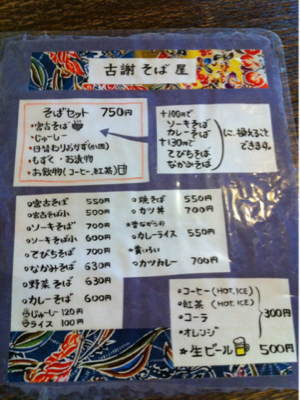 古謝そば屋
そばセット 750円
・宮古そば
・じゅーしー
・日替わりおかず(小皿)
・もずく・お漬物
・お飲物(コーヒー、紅茶)
+100円で
ソーキそば
カレーそば
+130円で
てびちそば
なかみそば
に、換えること
できます。
○宮古そば 550円
○宮古そば小 500円
○ソーキそば 700円
○ソーキそば小 600円
○てびちそば 700円
○なかみそば 630円
○野菜そば 630円
○カレーそば 600円
じゅーしー 120円
ライス 100円
○焼そば 550円
○カツ丼 700円
★昔ながらの
カレーライス 550円
★黄いろい
カツカレー 700円
○コーヒー(HOT, ICE)
○紅茶(HOT, ICE)
○コーラ
○オレンジ
300円
★生ビール 500円